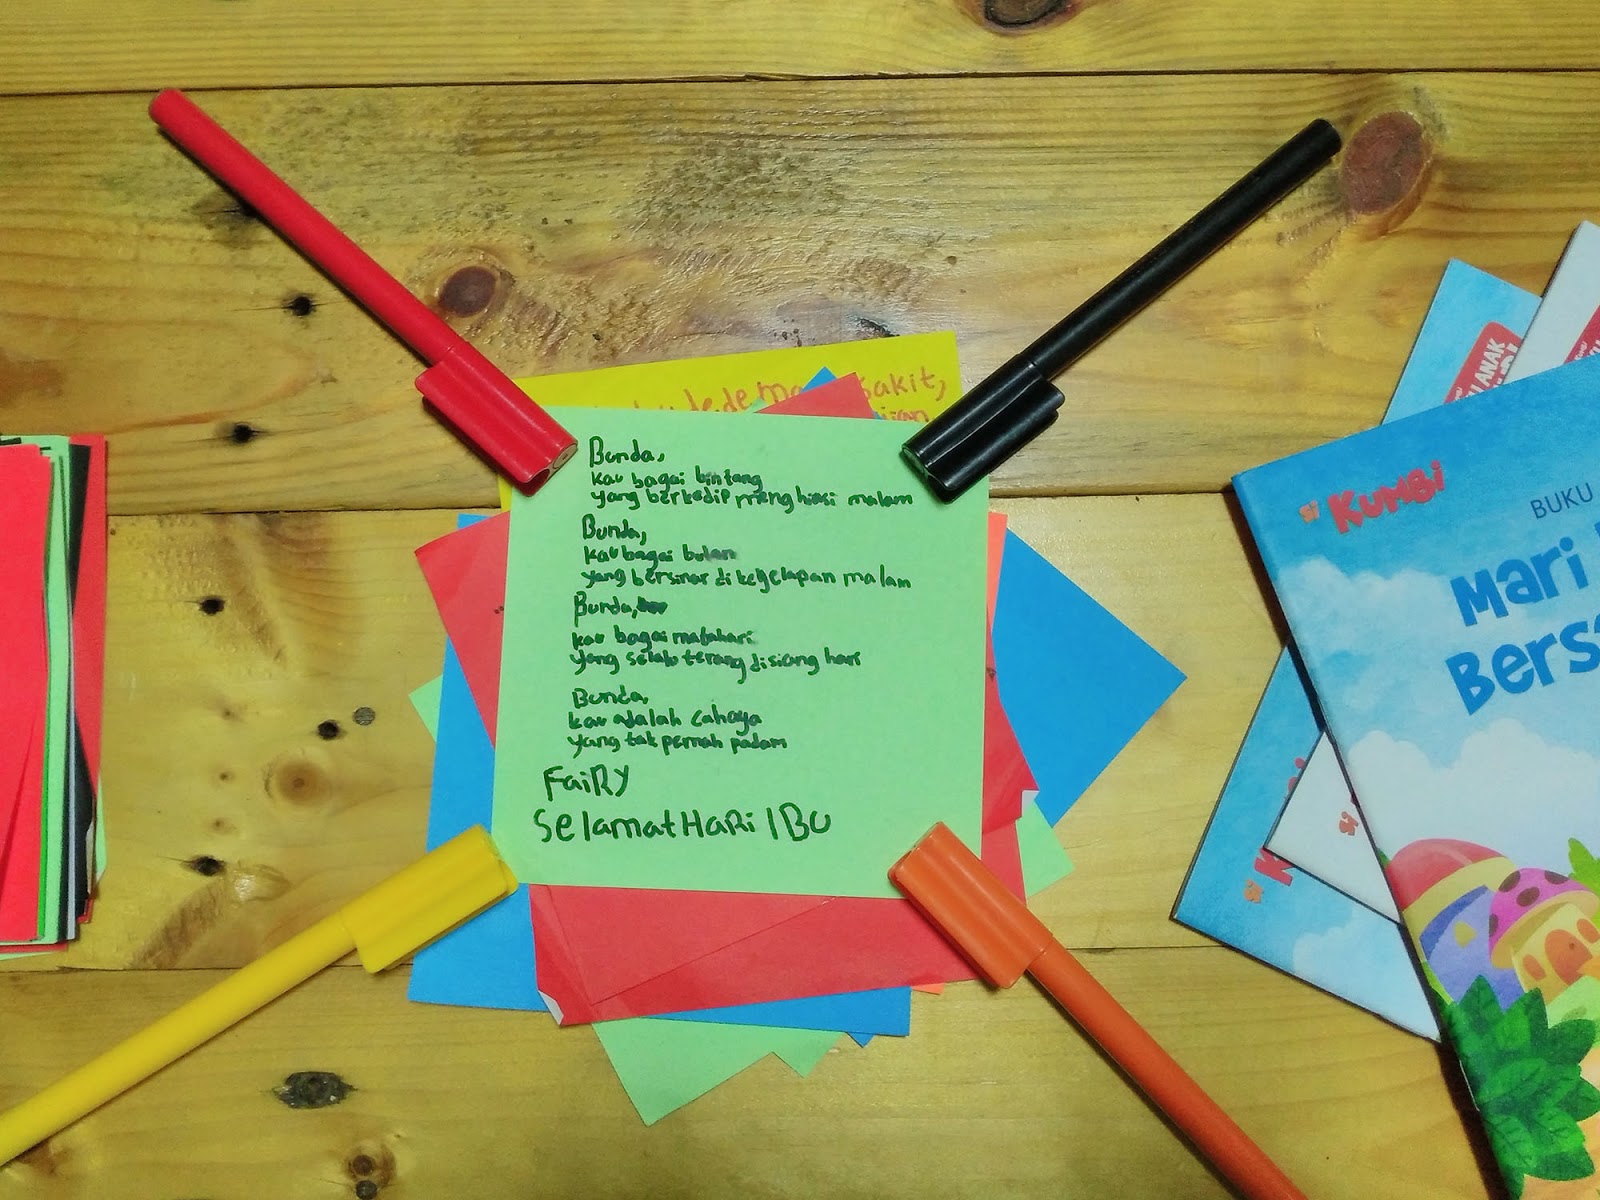 sakit,
Bunda,
kau bagai bintang
yang berkedip menghiasi malam
Bunda,
kau bagai bulan
yang bersinar di kegelapan malam
Bunda,
kau bagai matahari
yang selalu terang disiang hari
Bunda,
kau adalah cahaya
yang tak pernah padam
FaiRY
SelamatHaRi IBU
ANAK
si KUMBI
BUKU
Mari
Bers
si
si